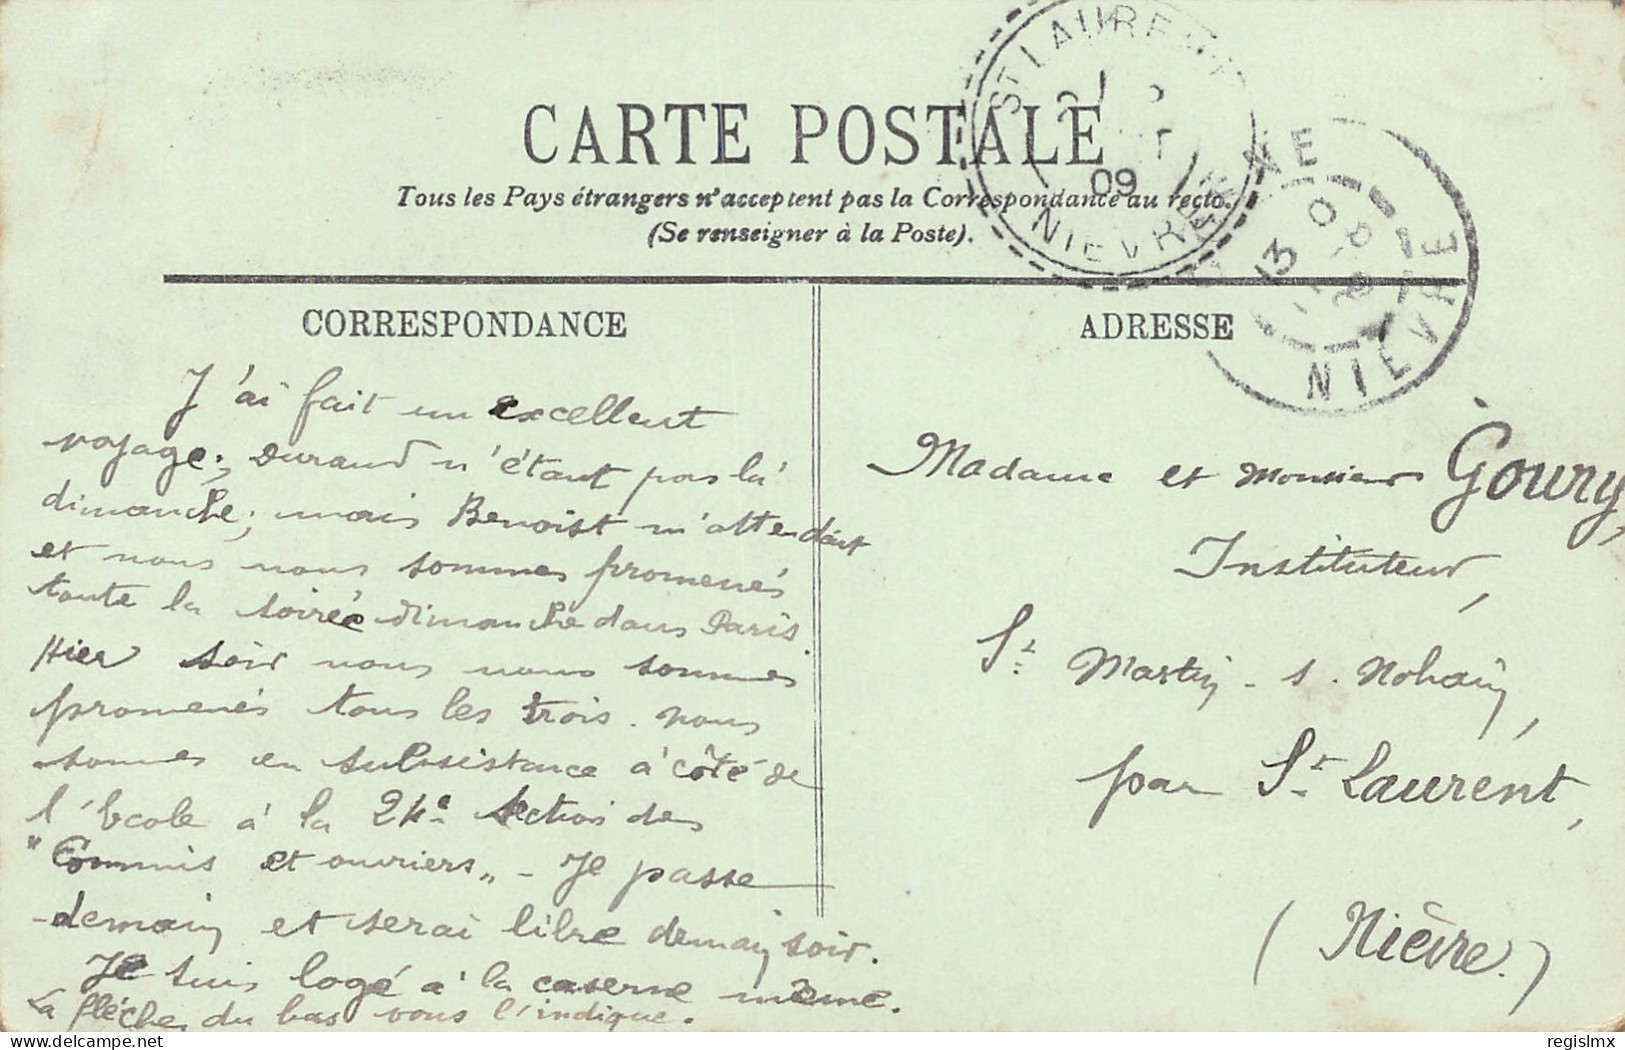 CARTE POSTALE
Tous les Pays étrangers n'acceptent pas la Correspondance au recto.
(Se renseigner à la Poste).
ST LAURENT
09
NIEVRE
13
NIEVRE
CORRESPONDANCE
J'ai fait un excellent
voyage; Durand n'étant pas là
dimanche; mais Benoist m'attendait
et nous nous sommes promenés
toute la soirée dimanche dans Paris.
Hier soir nous nous sommes
promenés tous les trois. Nous
sommes en subsistance à côté de
l'école à la 24e section des
"Commis et ouvriers" - Je passe
demain et serai libre demain soir.
Je suis logé à la caserne même.
La flèche du bas vous l'indique.
ADRESSE
Madame et Monsieur Goury,
Instituteur,
St Martin - s. Nohain,
par St Laurent,
(Nièvre.)
delcampe.net
regislmx